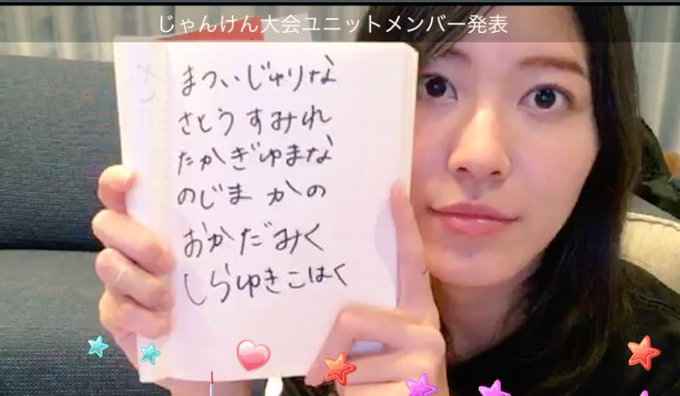 じゃんけん大会ユニットメンバー発表
まついじゅりな
さとう すみれ
たかぎゆまな
のじま かの
おかだみく
しらゆきこはく